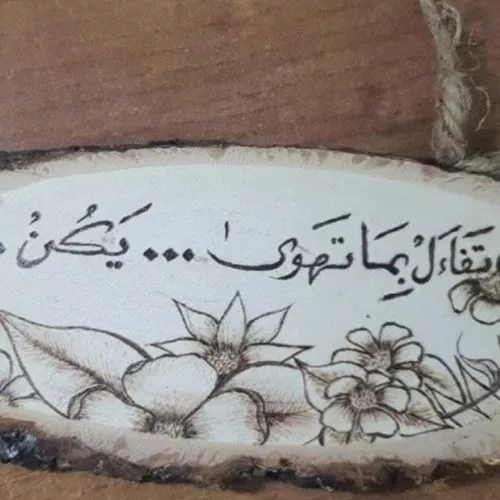 تَفَاءَلْ بِمَا تَهَوىٰ ... يَكُنْ